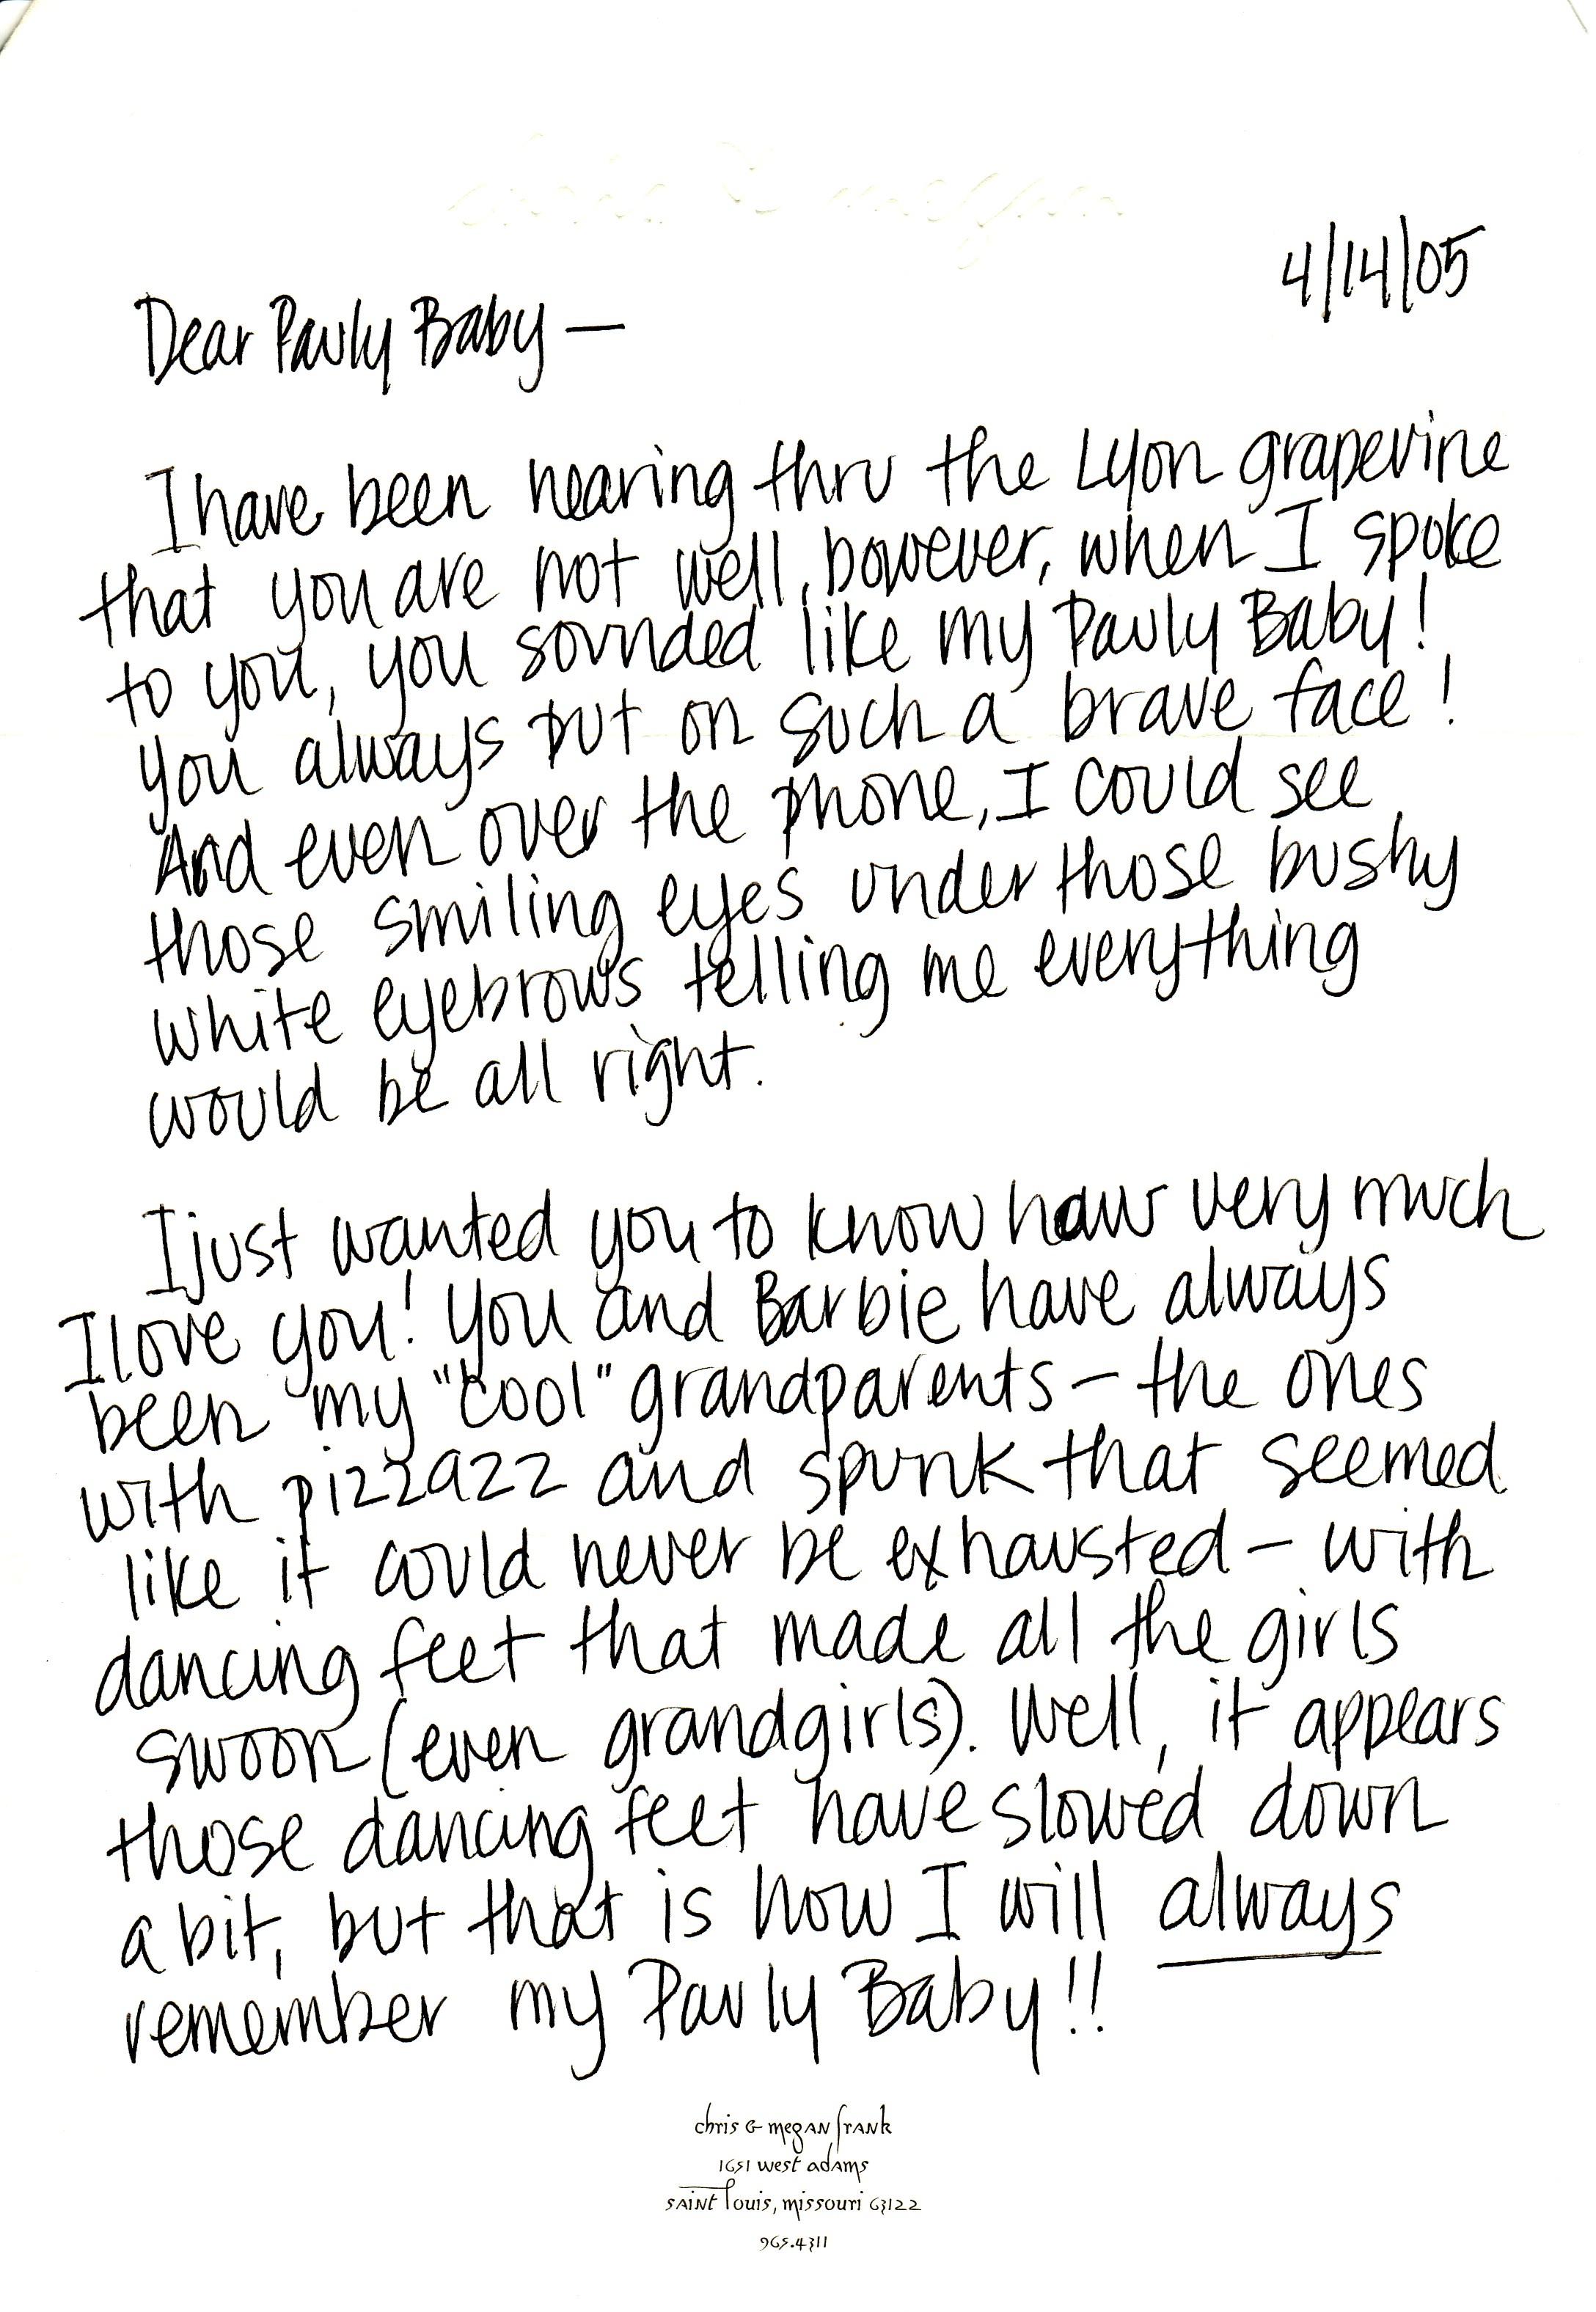 4/14/05
Dear Pauly Baby —
I have been hearing thru the Lyon grapevine
that you are not well, however, when I spoke
to you, you sounded like my Pauly Baby!
You always put on such a brave face!
And even over the phone, I could see
those smiling eyes under those bushy
white eyebrows telling me everything
would be all right.
I just wanted you to know how very much
I love you! You and Barbie have always
been my "cool" grandparents – the ones
with pizzazz and spunk that seemed
like it could never be exhausted – with
dancing feet that made all the girls
swoon (even grandgirls). Well, it appears
those dancing feet have slowed down
a bit, but that is how I will always
remember my Pauly Baby!!
chris & megan frank
1651 west adams
saint louis, missouri 63122
965.4311